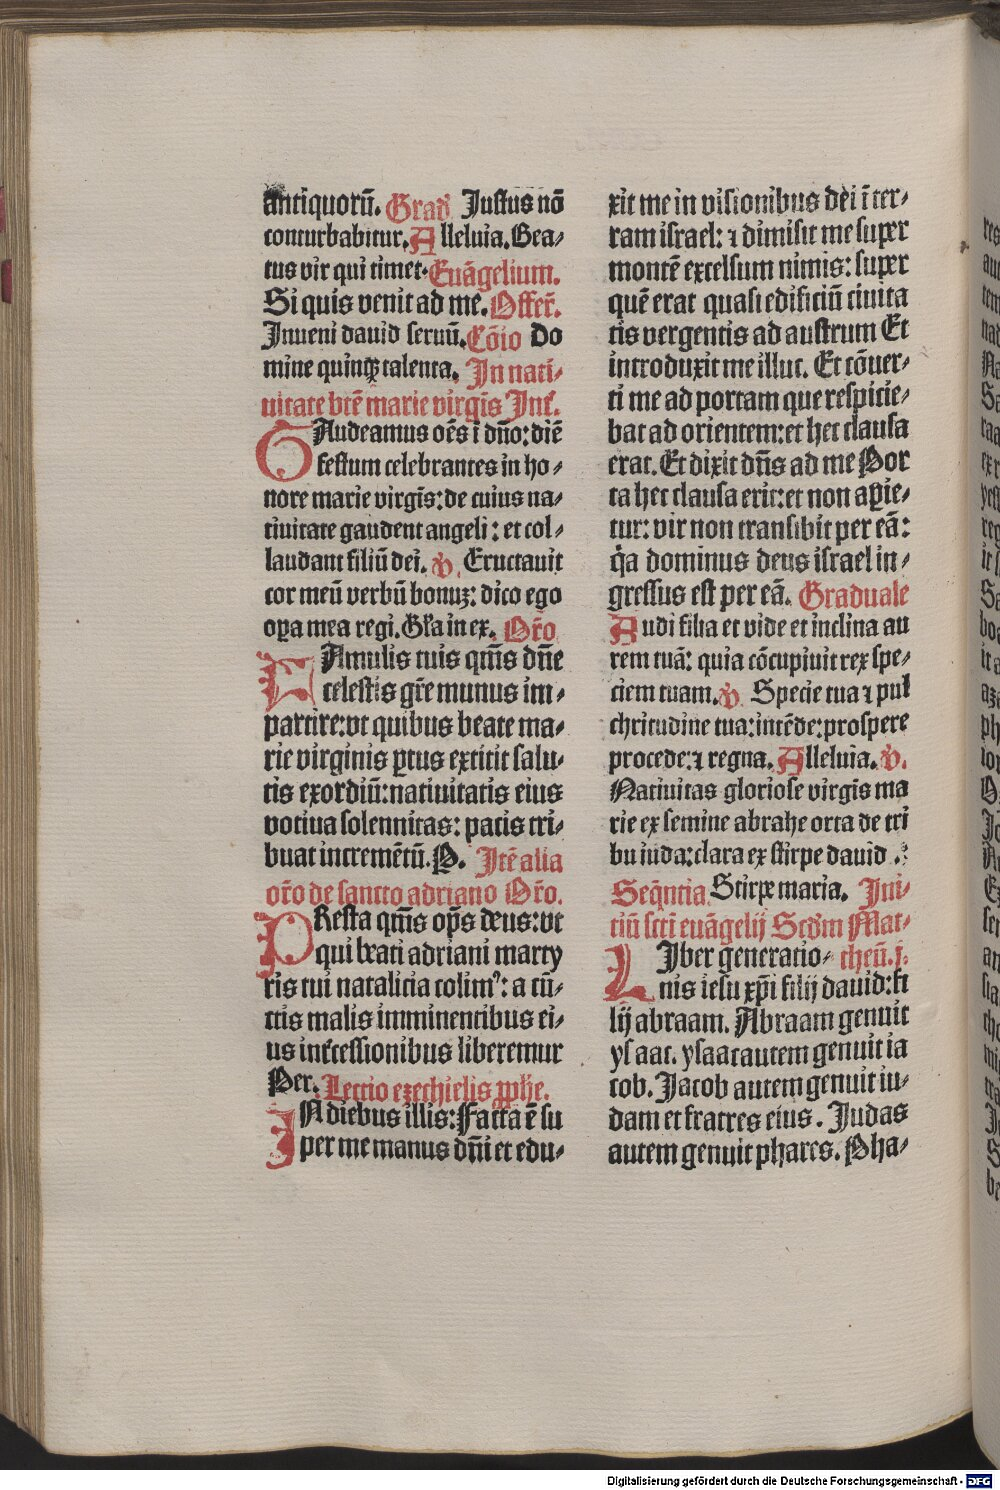 antiquorū. Grad Justus nō
conturbabitur. Alleluia. Bea⸗
tus vir qui timet. Euāgelium.
Si quis venit ad me. Offer̄.
Inueni dauid seruū. Cōio Do
mine quinqꝫ talenta. In nati⸗
uitate btē marie virgīs Int̄.
GAudeamus oēs ī dn̄o: diē
festum celebrantes in ho⸗
nore marie virgīs: de cuius na⸗
tiuitate gaudent angeli: et col⸗
laudant filiū dei. ℣. Eructauit
cor meū verbū bonuꝫ: dico ego
oꝑa mea regi. Gl'a in ex. Or̄o
FAmulis tuis qm̄s dn̄e
celestis gr̄e munus im⸗
partire: vt quibus beate ma⸗
rie virginis ꝑtus extitit salu⸗
tis exordiū: natiuitatis eius
votiua solennitas: pacis tri⸗
buat incremētū. P. Itē alia
or̄o de sancto adriano Or̄o.
PResta qm̄s op̄s deus: vt
qui beati adriani marty
ris tui natalicia colimꝰ: a cū⸗
ctis malis imminentibus ei⸗
us int̄cessionibus liberemur
Per. Lectio ezechielis ꝓphe.
IN diebus illis: Facta ē su
per me manus dn̄i et edu⸗
xit me in visionibus dei ī ter⸗
ram israel: ⁊ dimisit me super
montē excelsum nimis: super
quē erat quasi edificiū ciuita
tis vergentis ad austrum Et
introduxit me illuc. Et cōuer⸗
ti me ad portam que respicie⸗
bat ad orientem: et hec clausa
erat. Et dixit dn̄s ad me Por
ta hec clausa erit: et non aꝑie⸗
tur: vir non transibit per eā:
q̄a dominus deus israel in⸗
gressus est per eā. Graduale
Audi filia et vide et inclina au
rem tuā: quia cōcupiuit rex spe⸗
ciem tuam. ℣. Specie tua ⁊ pul
chritudine tua: intēde: prospere
procede: ⁊ regna. Alleluia. ℣.
Natiuitas gloriose virgīs ma
rie ex semine abrahe orta de tri
bu iuda: clara ex stirpe dauid.
Seq̄ntia. Stirpe maria. Ini⸗
tiū sctī euāgelij Scdm̄ Mat⸗
LIber generatio⸗ theū. j.
nis iesu xp̄i filij dauid: fi
lij abraam. Abraam genuit
ysaac. ysaac autem genuit ia
cob. Jacob autem genuit iu⸗
dam et fratres eius. Judas
autem genuit phares. Pha⸗
Digitalisierung gefördert durch die Deutsche Forschungsgemeinschaft - DFG